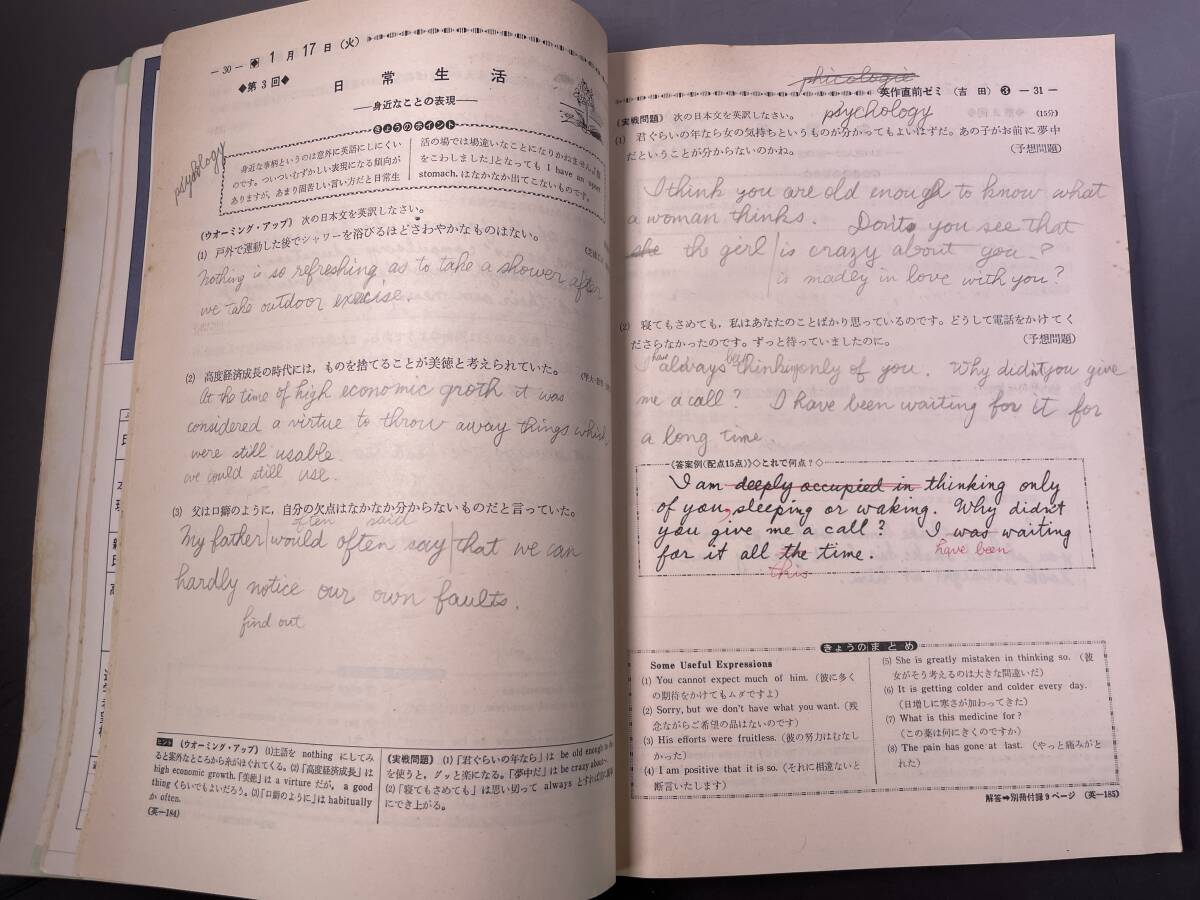 — 30 — 1月17日（火）
◆第3回◆ 日常生活
——身近なことの表現——
きょうのポイント
身近な事柄というのは意外に英語にしにくい
のです。ついついむずかしい表現になる傾向が
ありますが、あまり固苦しい言い方だと日常生
活の場では場違いなことになりかねません。「腹
をこわしました」となっても I have an upset
stomach. はなかなか出てこないものです。
psychology
《ウオーミング・アップ》 次の日本文を英訳しなさい。
(1) 戸外で運動した後でシャワーを浴びるほどさわやかなものはない。
Nothing is so refreshing as to take a shower after
we take outdoor execise.
(2) 高度経済成長の時代には，ものを捨てることが美徳と考えられていた。
At the time of high economic groth it was
considered a virtue to throw away things which
were still usable.
we could still use.
(3) 父は口癖のように，自分の欠点はなかなか分からないものだと言っていた。
often said
My father would often say that we can
hardly notice our own faults.
find out
ヒント 《ウオーミング・アップ》 (1)主語を nothing にしてみ
ると案外なところから糸がほぐれてくる。(2)「高度経済成長」は
high economic growth.「美徳」は a virture だが， a good
thing くらいでもよいだろう。(3)「口癖のように」は habitually
か often.
(英—184)
《実戦問題》 (1)「君ぐらいの年なら」は be old enough to
を使うと，グッと楽になる。「夢中だ」は be crazy about〜.
(2)「寝てもさめても」は思い切って always とすれば
にでき上がる。
phicologie
英作直前ゼミ （吉田） ❸ — 31 —
psychology
《実戦問題》 次の日本文を英訳しなさい。 (15分)
(1) 君ぐらいの年なら女の気持ちというものが分かってもよいはずだ。あの子がお前に夢中
だということが分からないのかね。 （予想問題）
I think you are old enough to know what
a woman thinks. Don't you see that
she the girl is crazy about you?
is madly in love with you?
(2) 寝てもさめても，私はあなたのことばかり思っているのです。どうして電話をかけてく
ださらなかったのです。ずっと待っていましたのに。 （予想問題）
have been
I always thinking only of you. Why didn't you give
me a call? I have been waiting for it for
a long time.
《答案例(配点15点)》◇これで何点？◇
I am deeply occupied in thinking only
of you, sleeping or waking. Why didn't
you give me a call? I was waiting
for it all the time. have been
this
きょうのまとめ
Some Useful Expressions
(1) You cannot expect much of him.（彼に多く
の期待をかけてもムダですよ）
(2) Sorry, but we don't have what you want.（残
念ながらご希望の品はないのです）
(3) His efforts were fruitless.（彼の努力はむなし
かった）
(4) I am positive that it is so.（それに相違ないと
断言いたします）
(5) She is greatly mistaken in thinking so.（彼
女がそう考えるのは大きな間違いだ）
(6) It is getting colder and colder every day.
（日増しに寒さが加わってきた）
(7) What is this medicine for?
（この薬は何にきくのですか）
(8) The pain has gone at last.（やっと痛みがと
れた）
解答➡別冊付録9ページ （英—185）